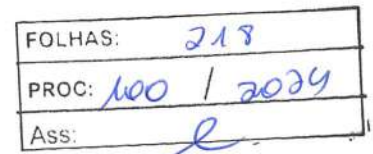 FOLHAS: 218
PROC: 100 / 2024
Ass: